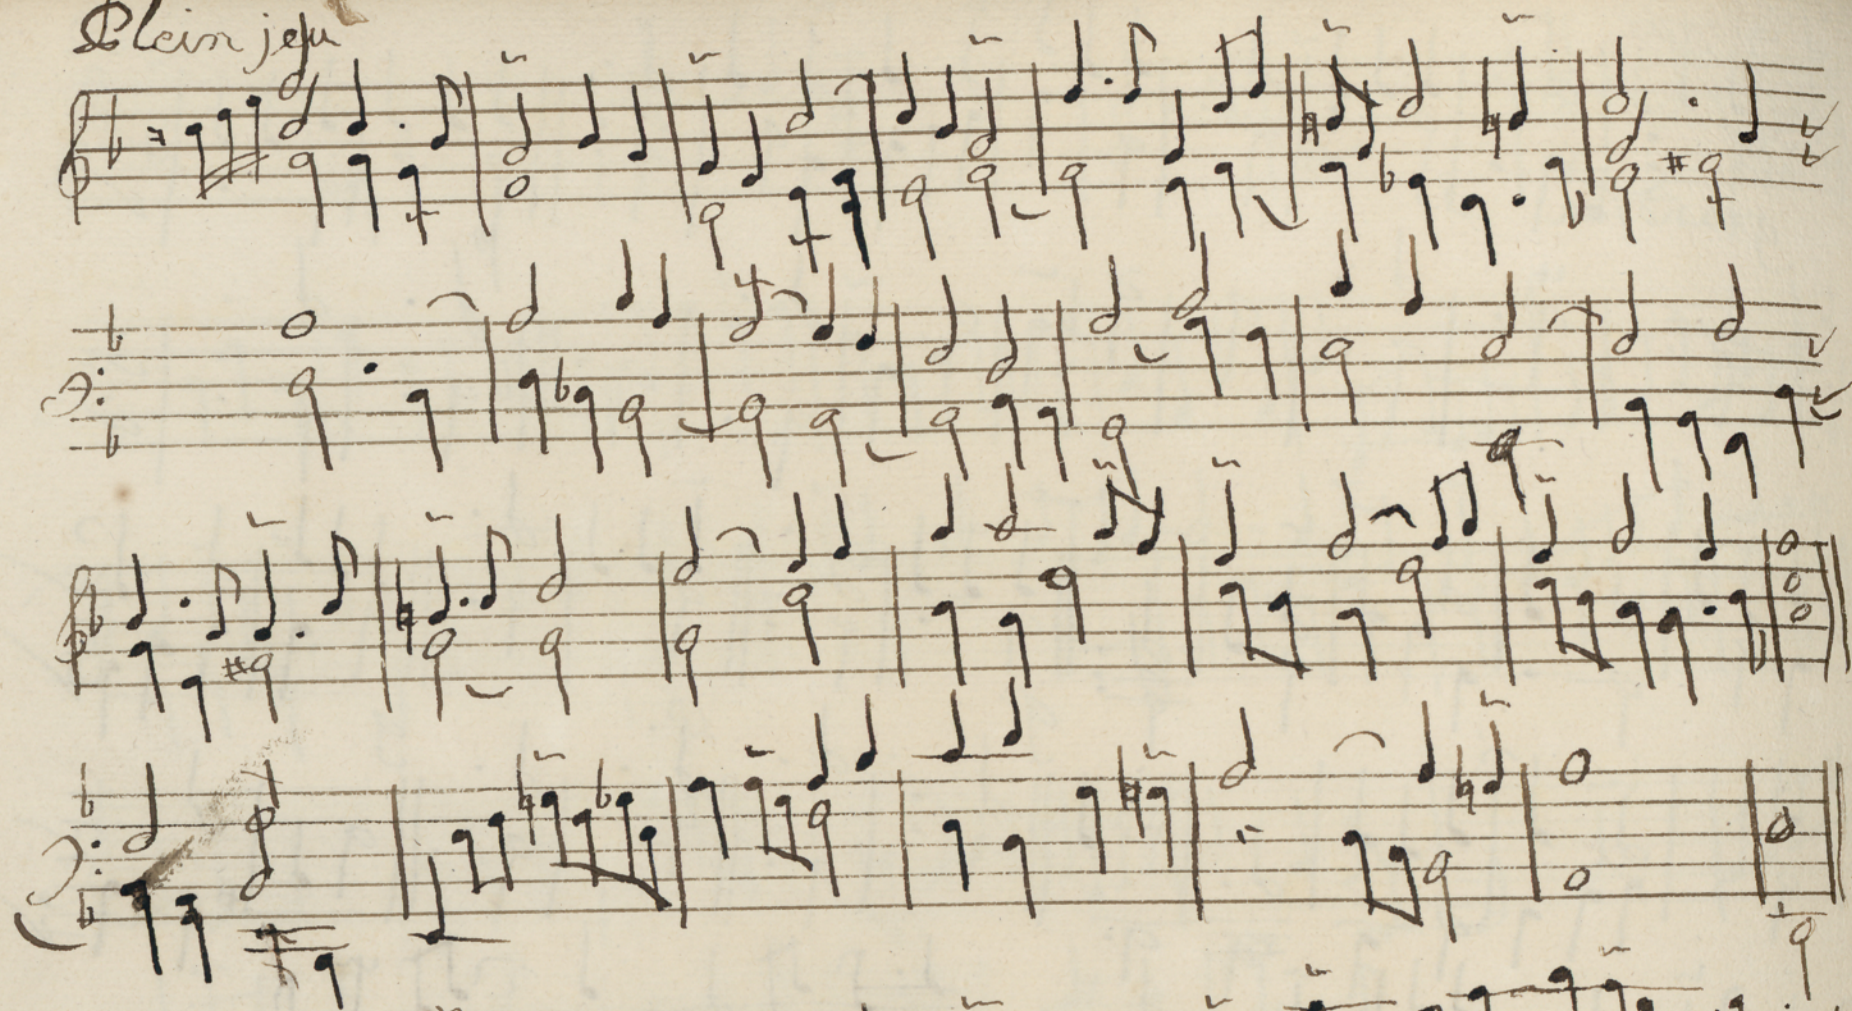 Plein jeu